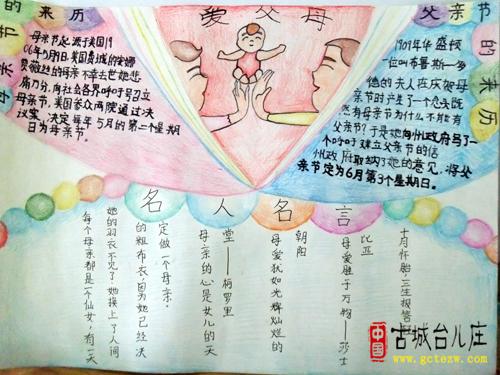 爱父母
母亲节的来历
母亲节起源于美国19
06年5月9日,美国费城的安娜
贾薇丝的母亲不幸去世她悲
痛万分,向社会各界呼吁号召立
母亲节,美国参众两院通过决
议案,决定每年5月的第二个星期
日为母亲节。
父亲节的来历
1909年华盛顿
一位叫布鲁斯—多
德的夫人在庆祝母
亲节时产生了一个念头既
然有母亲节为什么不能有
父亲节?于是她向州政府写了一
个呼吁建立父亲节的信
州政府取纳了她的意见,将父
亲节定为6月第3个星期日。
名人名言
十月怀胎,三生报答
比亚
母爱胜于万物——莎士
朝阳
母爱犹如光辉灿烂的
堂——柯罗里
母亲的心是女儿的天
定做一个母亲。
的粗布衣,因为她已经决
她的羽衣不见了她换上了人间
每个母亲都是一个仙女,有一天
中国
古城台儿庄
www.gctezw.com